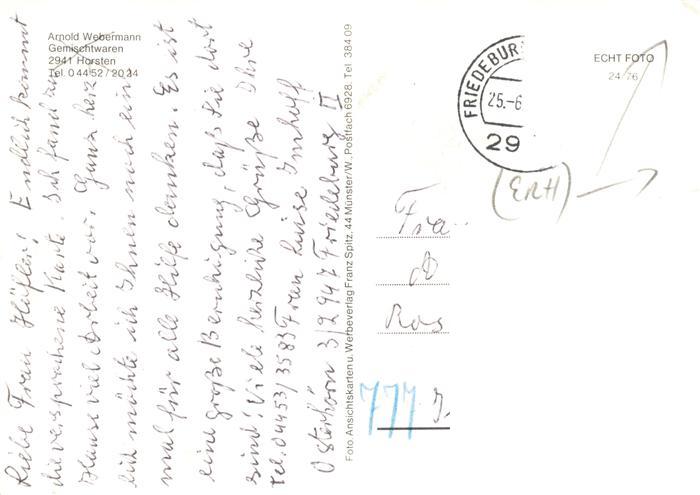 Arnold Webermann
Gemischtwaren
2941 Horsten
Tel. 0 44 52 / 20 24
Liebe Frau Häfler! Endlich kommt
die versprochene Karte. Ich fand zu
Hause viel Arbeit vor. Ganz herz
lich möchte ich Ihnen noch ein
mal für alle Hilfe danken. Es ist
eine große Beruhigung, daß Sie dort
sind! Viele herzliche Grüße Ihre
Tel. 04453/3583 Frau Luise Imhoff
Osterhörn 3/2947 Friedeburg II
Foto Ansichtskarten u. Werbeverlag Franz Spitz, 44 Münster/W., Postfach 6928, Tel. 384 09
FRIEDEBUR
25.-6
29
ECHT FOTO
24/76
(ERH)
Fra
Ros
777 J.